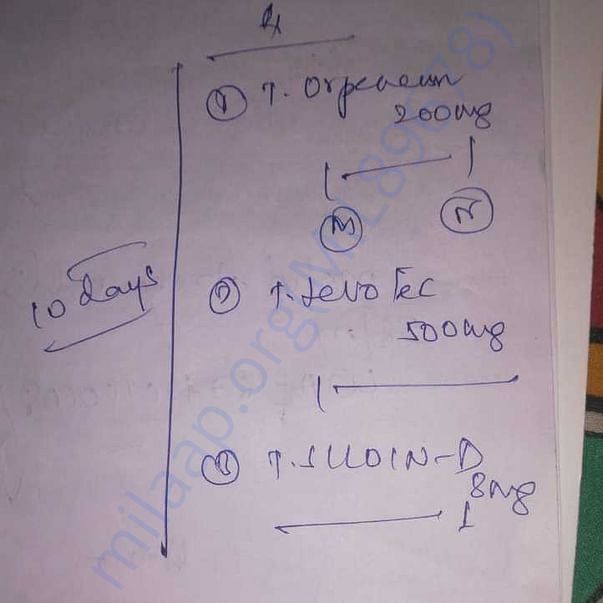 Rx
① T. Orpenem
200mg
1 — 1
M N
10 days
② T. Levotec
500mg
1 —
③ T. SILODIN-D
8mg
— 1
milaap.org(MIL89678)